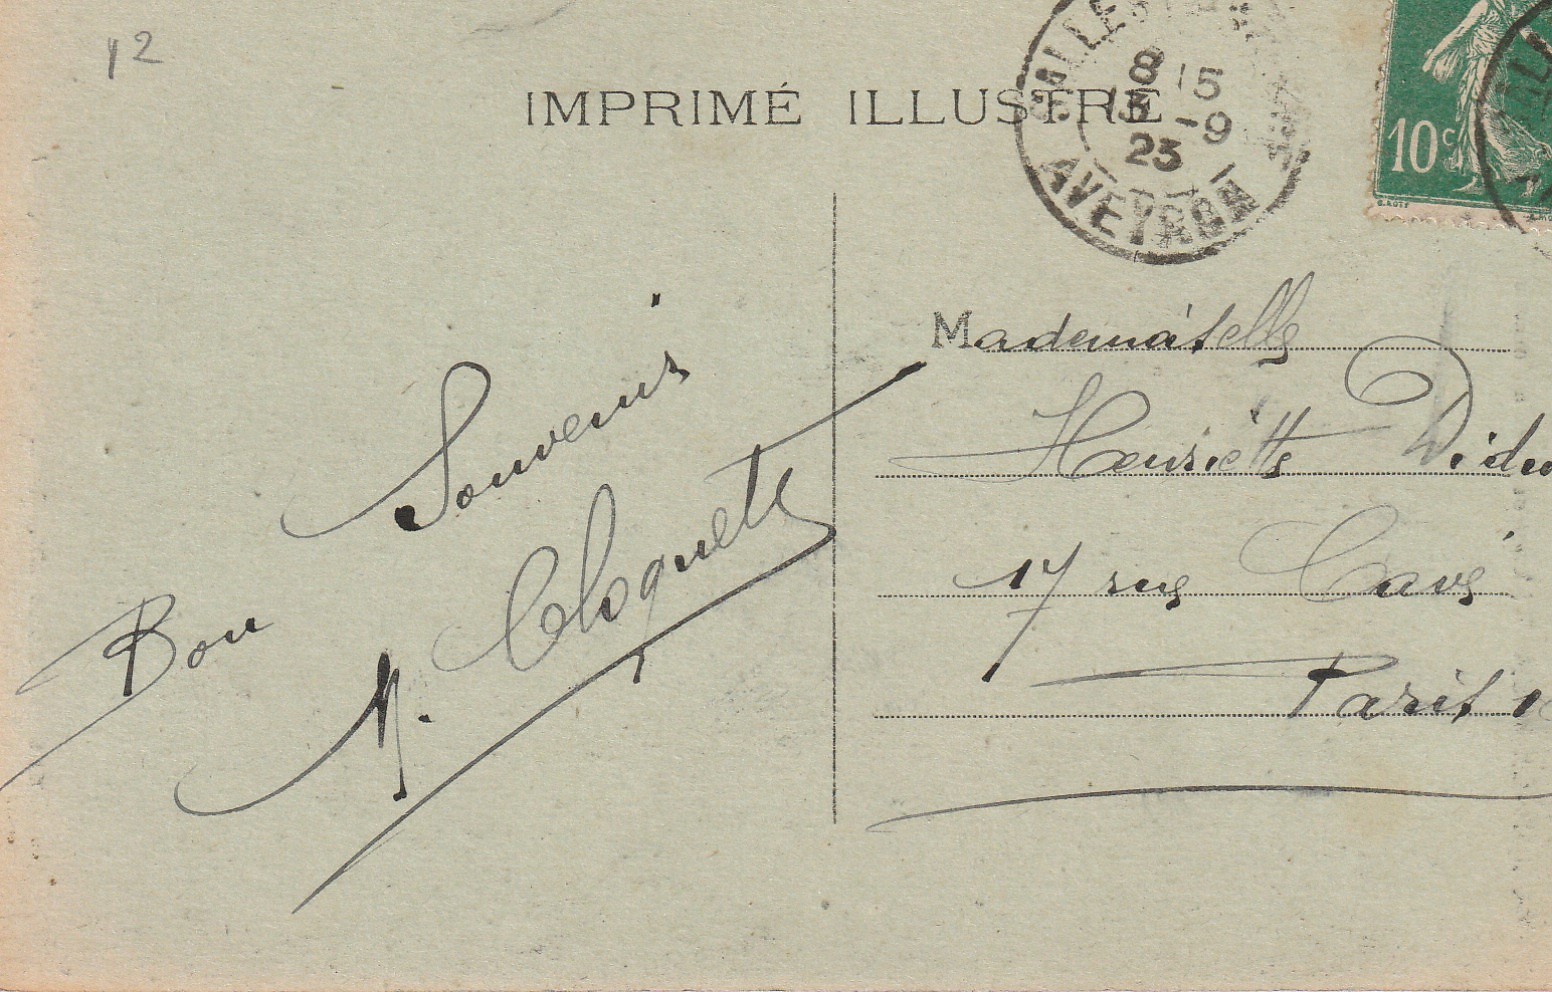 12
IMPRIMÉ ILLUSTRÉ
8 15
3 -9
23
AVEYRON
10c
Bon Souvenir
M. Cloquette
Mademoiselle
Henriette
17 rue Cavé
Paris